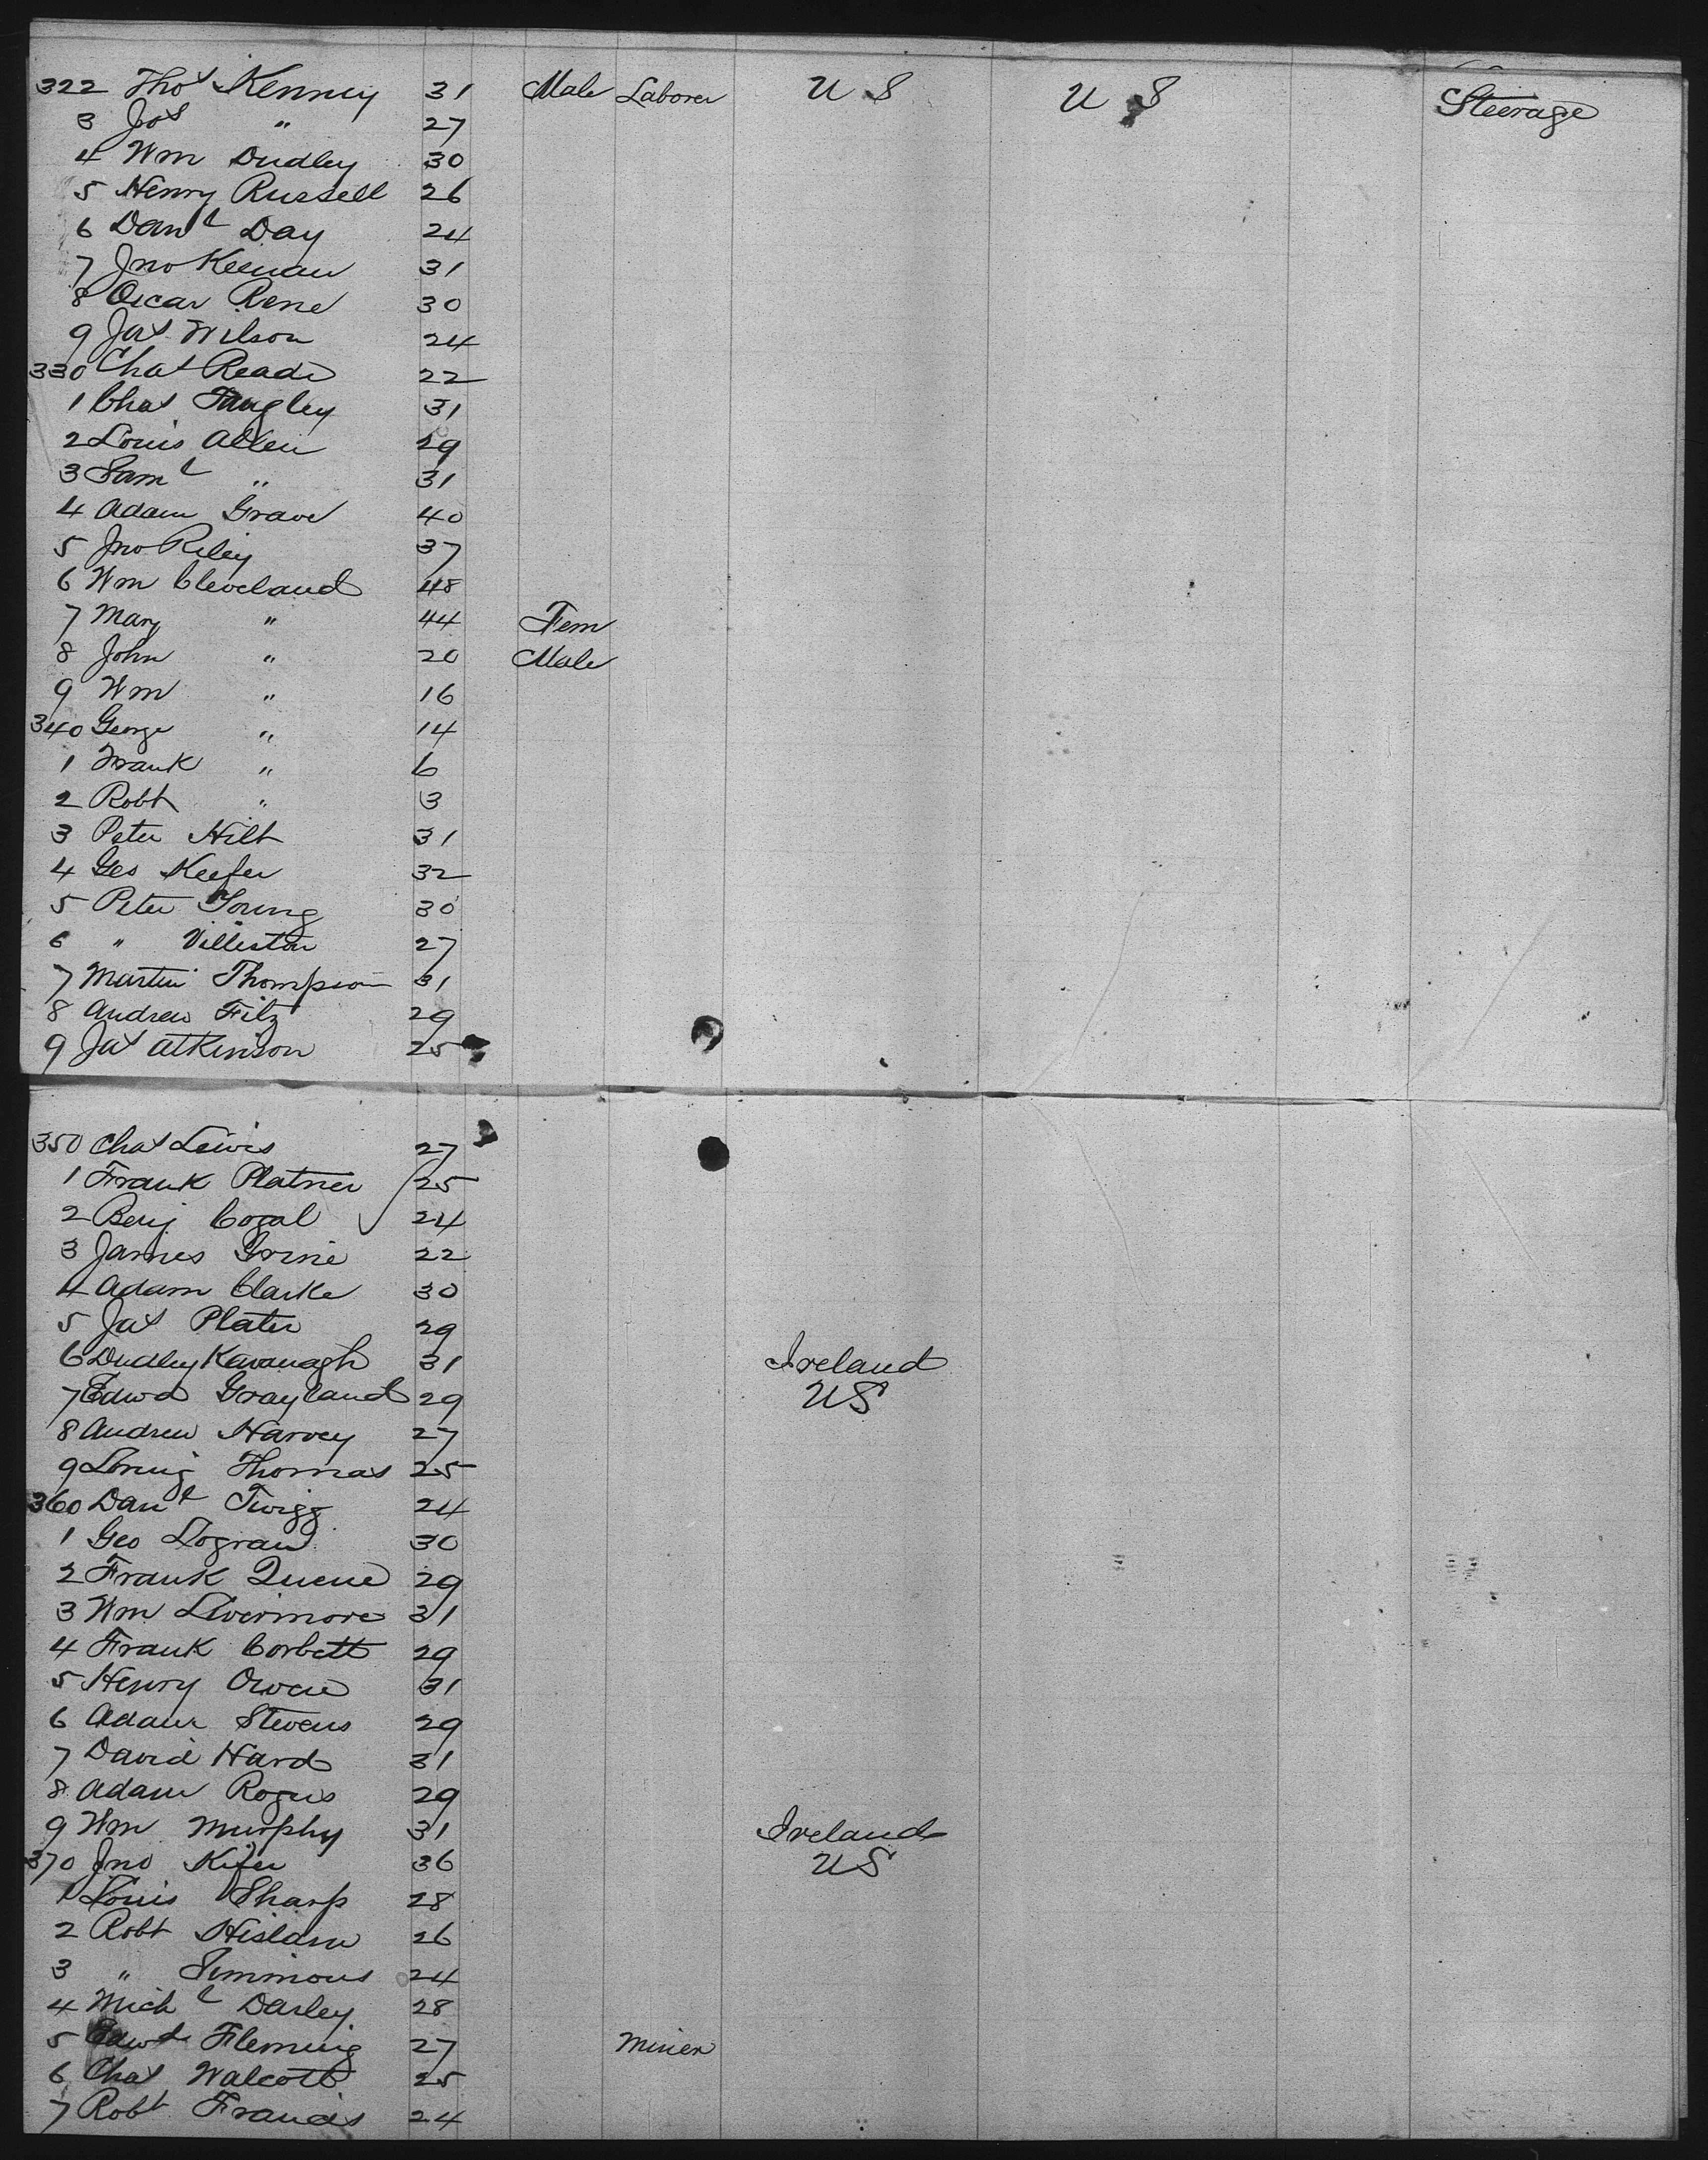 322 Thos Kenney 31 Male Laborer U S U S Steerage
3 Jos " 27
4 Wm Dudley 30
5 Henry Russell 26
6 Danl Day 24
7 Jno Keenan 31
8 Oscar Rene 30
9 Jas Wilson 24
330 Chas Reade 22
1 Chas Tangley 31
2 Louis Allen 29
3 Saml " 31
4 Adam Grave 40
5 Jno Riley 37
6 Wm Cleveland 48
7 Mary " 44 Fem
8 John " 20 Male
9 Wm " 16
340 George " 14
1 Frank " 6
2 Robt " 3
3 Peter Hilt 31
4 Geo Keefer 32
5 Peter Young 30
6 " Villiston 27
7 Martin Thompson 31
8 Andrew Fitz 29
9 Jas Atkinson 25
350 Chas Lewis 27
1 Frank Platner 25
2 Benj Cogal 24
3 James Irvine 22
4 Adam Clarke 30
5 Jas Plater 29
6 Dudley Kavanagh 31 Ireland
7 Edwd Grayland 29 US
8 Andrew Harvey 27
9 Loring Thomas 25
360 Danl Twigg 24
1 Geo Logran 30
2 Frank Queue 29
3 Wm Livermore 31
4 Frank Corbett 29
5 Henry Owen 31
6 Adam Stevens 29
7 David Hard 31
8 Adam Rogers 29
9 Wm Murphy 31 Ireland
370 Jno Kifer 36 US
1 Louis Sharp 28
2 Robt Hislam 26
3 " Simmons 24
4 Michl Darley 28
5 Edwd Fleming 27 Miner
6 Chas Walcott 25
7 Robt Francis 24